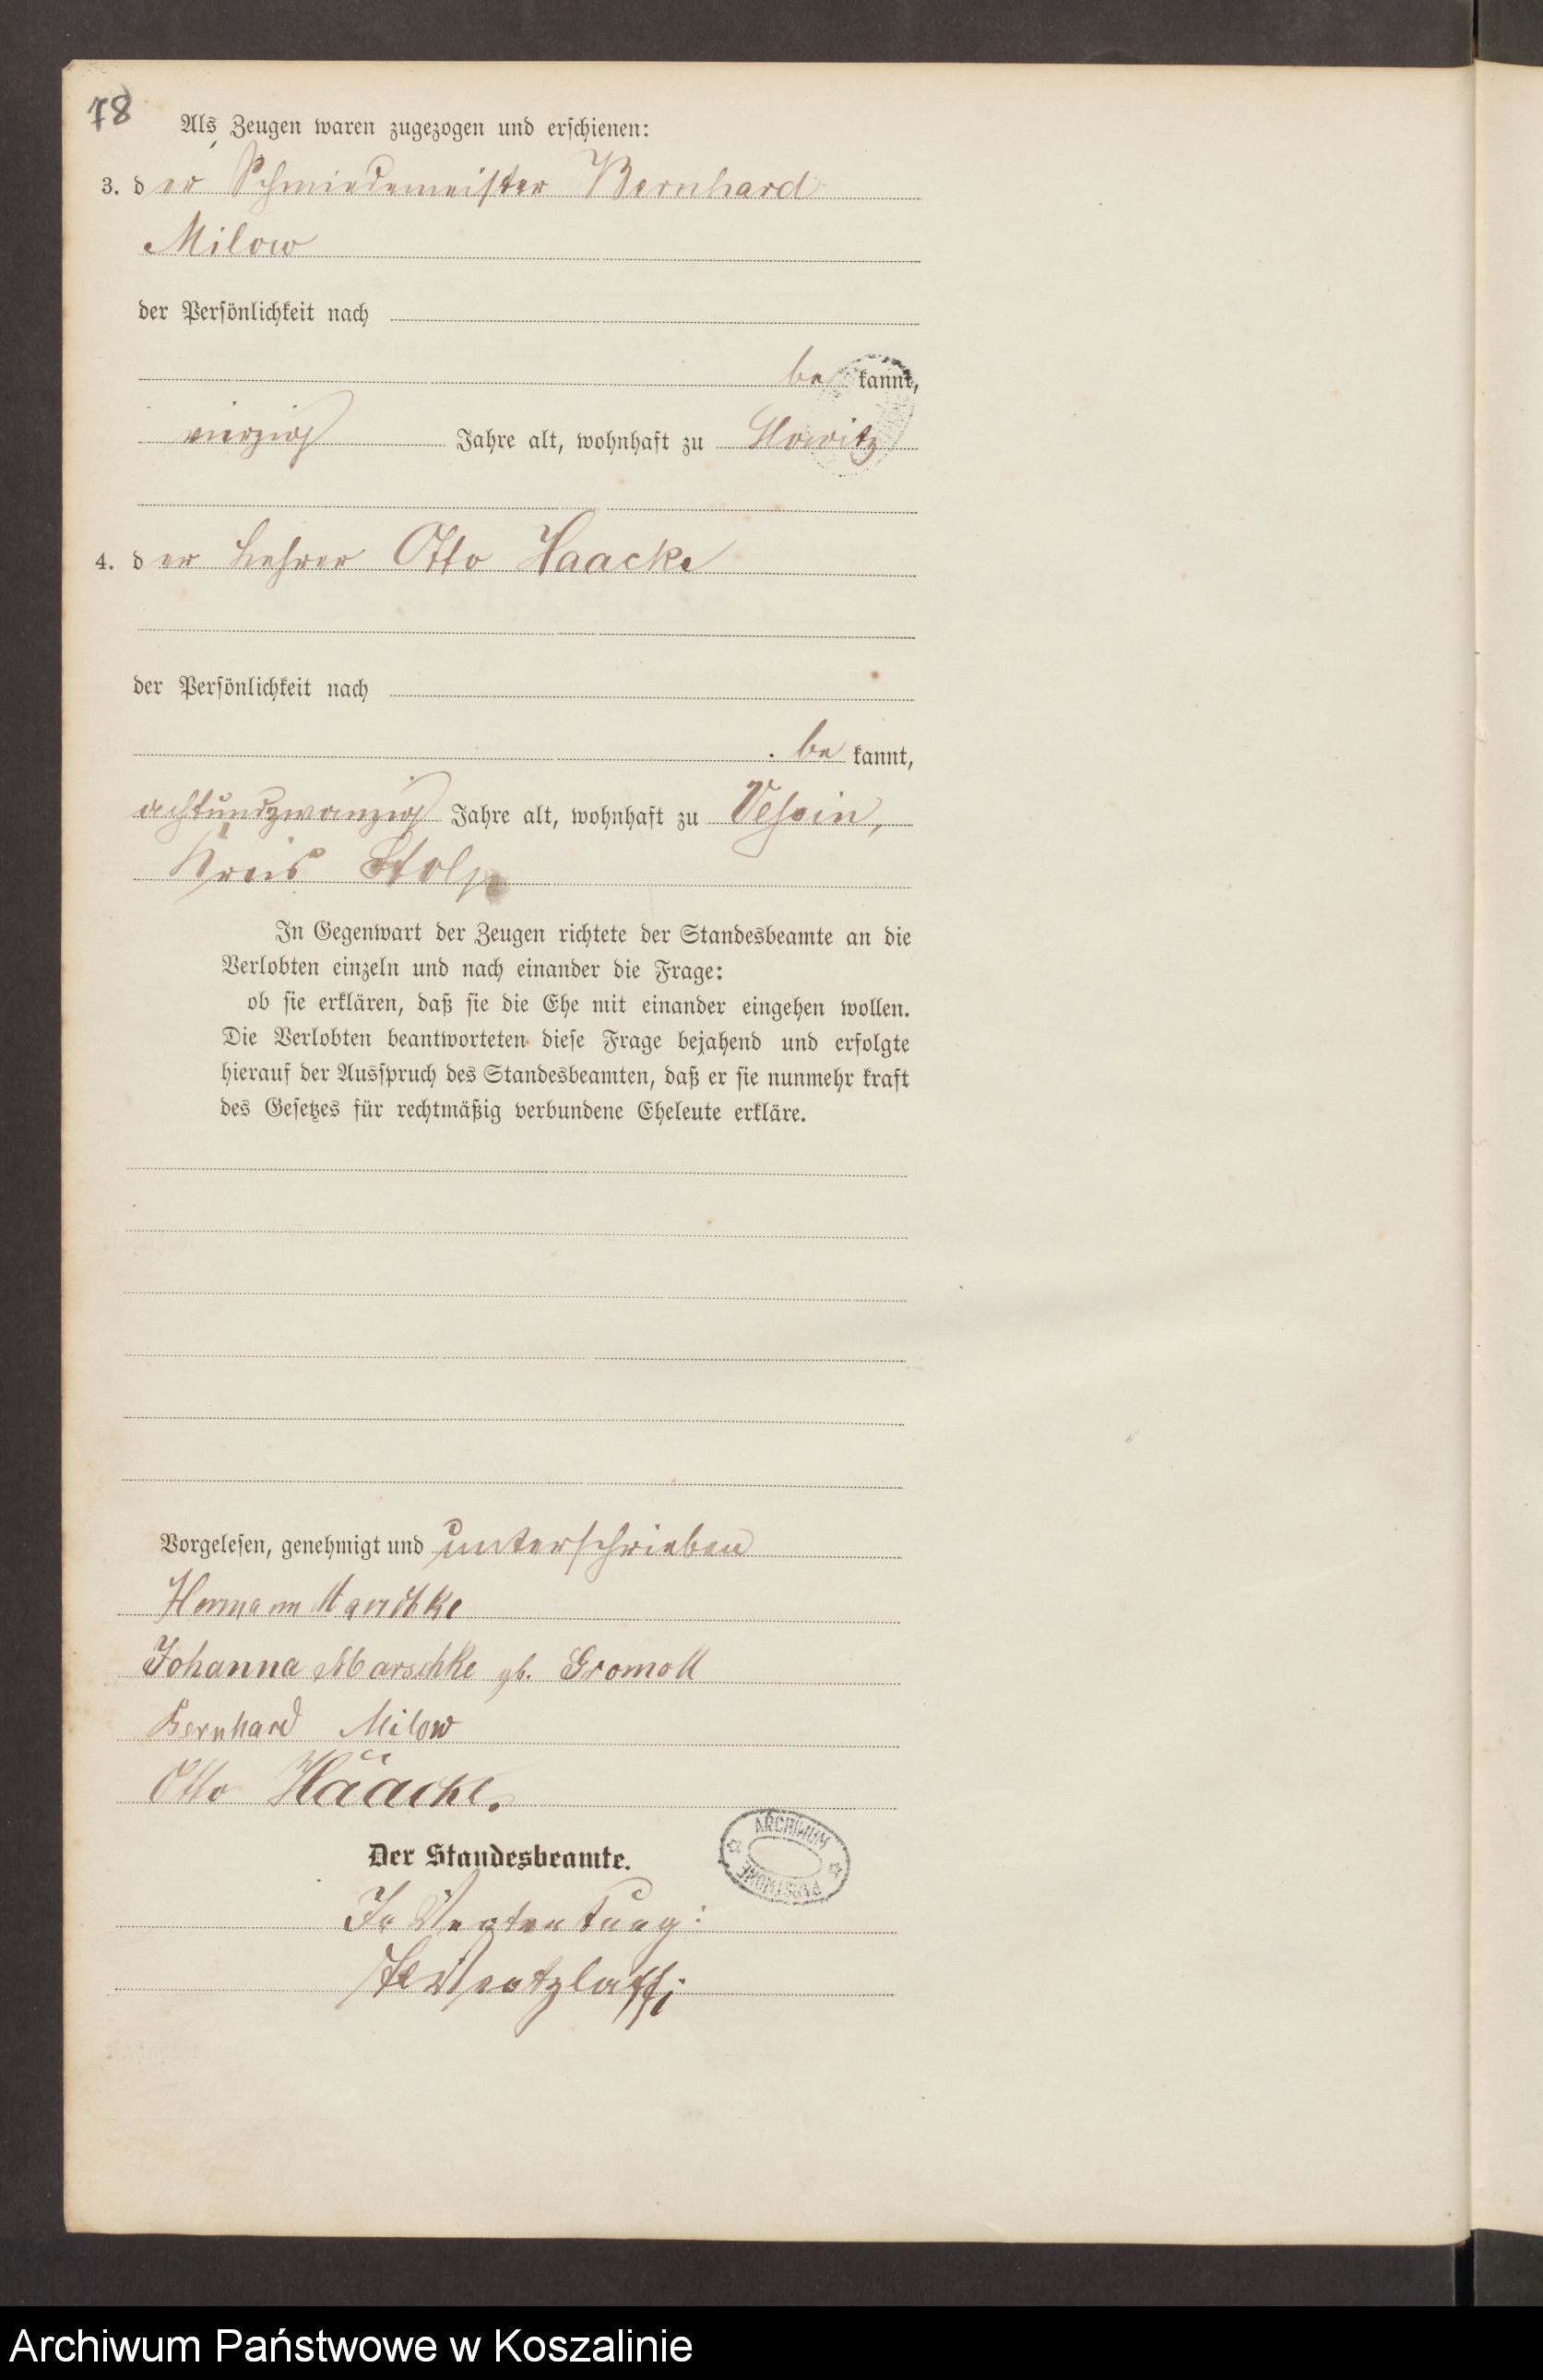 78
Als Zeugen waren zugezogen und erschienen:
3. der Schmiedemeister Bernhard
Milow
der Persönlichkeit nach
bekannt,
vierzig Jahre alt, wohnhaft zu
4. der Lehrer Otto Haacke
der Persönlichkeit nach
bekannt,
achtundzwanzig Jahre alt, wohnhaft zu Vessin,
Kreis Stolp
In Gegenwart der Zeugen richtete der Standesbeamte an die
Verlobten einzeln und nach einander die Frage:
ob sie erklären, daß sie die Ehe mit einander eingehen wollen.
Die Verlobten beantworteten diese Frage bejahend und erfolgte
hierauf der Ausspruch des Standesbeamten, daß er sie nunmehr kraft
des Gesetzes für rechtmäßig verbundene Eheleute erkläre.
Vorgelesen, genehmigt und unterschrieben
Hermann Marschke
Johanna Marschke gb. Gromoll
Bernhard Milow
Otto Haacke.
ARCHIWUM
PAŃSTWOWE
Der Standesbeamte.
In Vertretung:
Archiwum Państwowe w Koszalinie